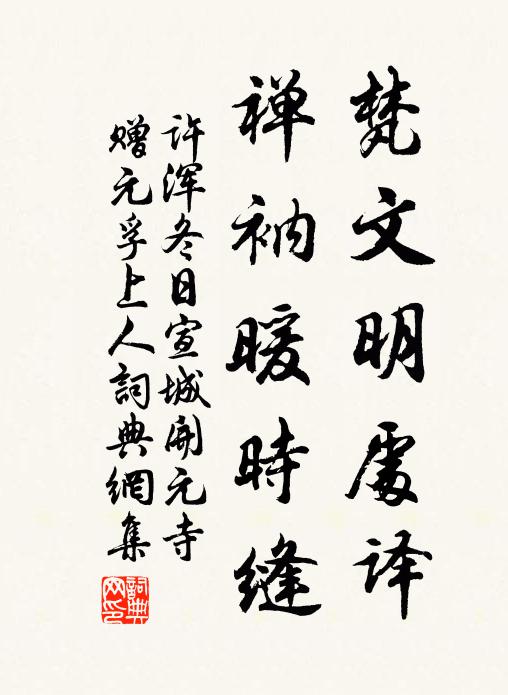 梵文明處译
禅衲暖時縫
许浑冬日宣城開元寺
赠元孚上人詞典網集
詞典网印